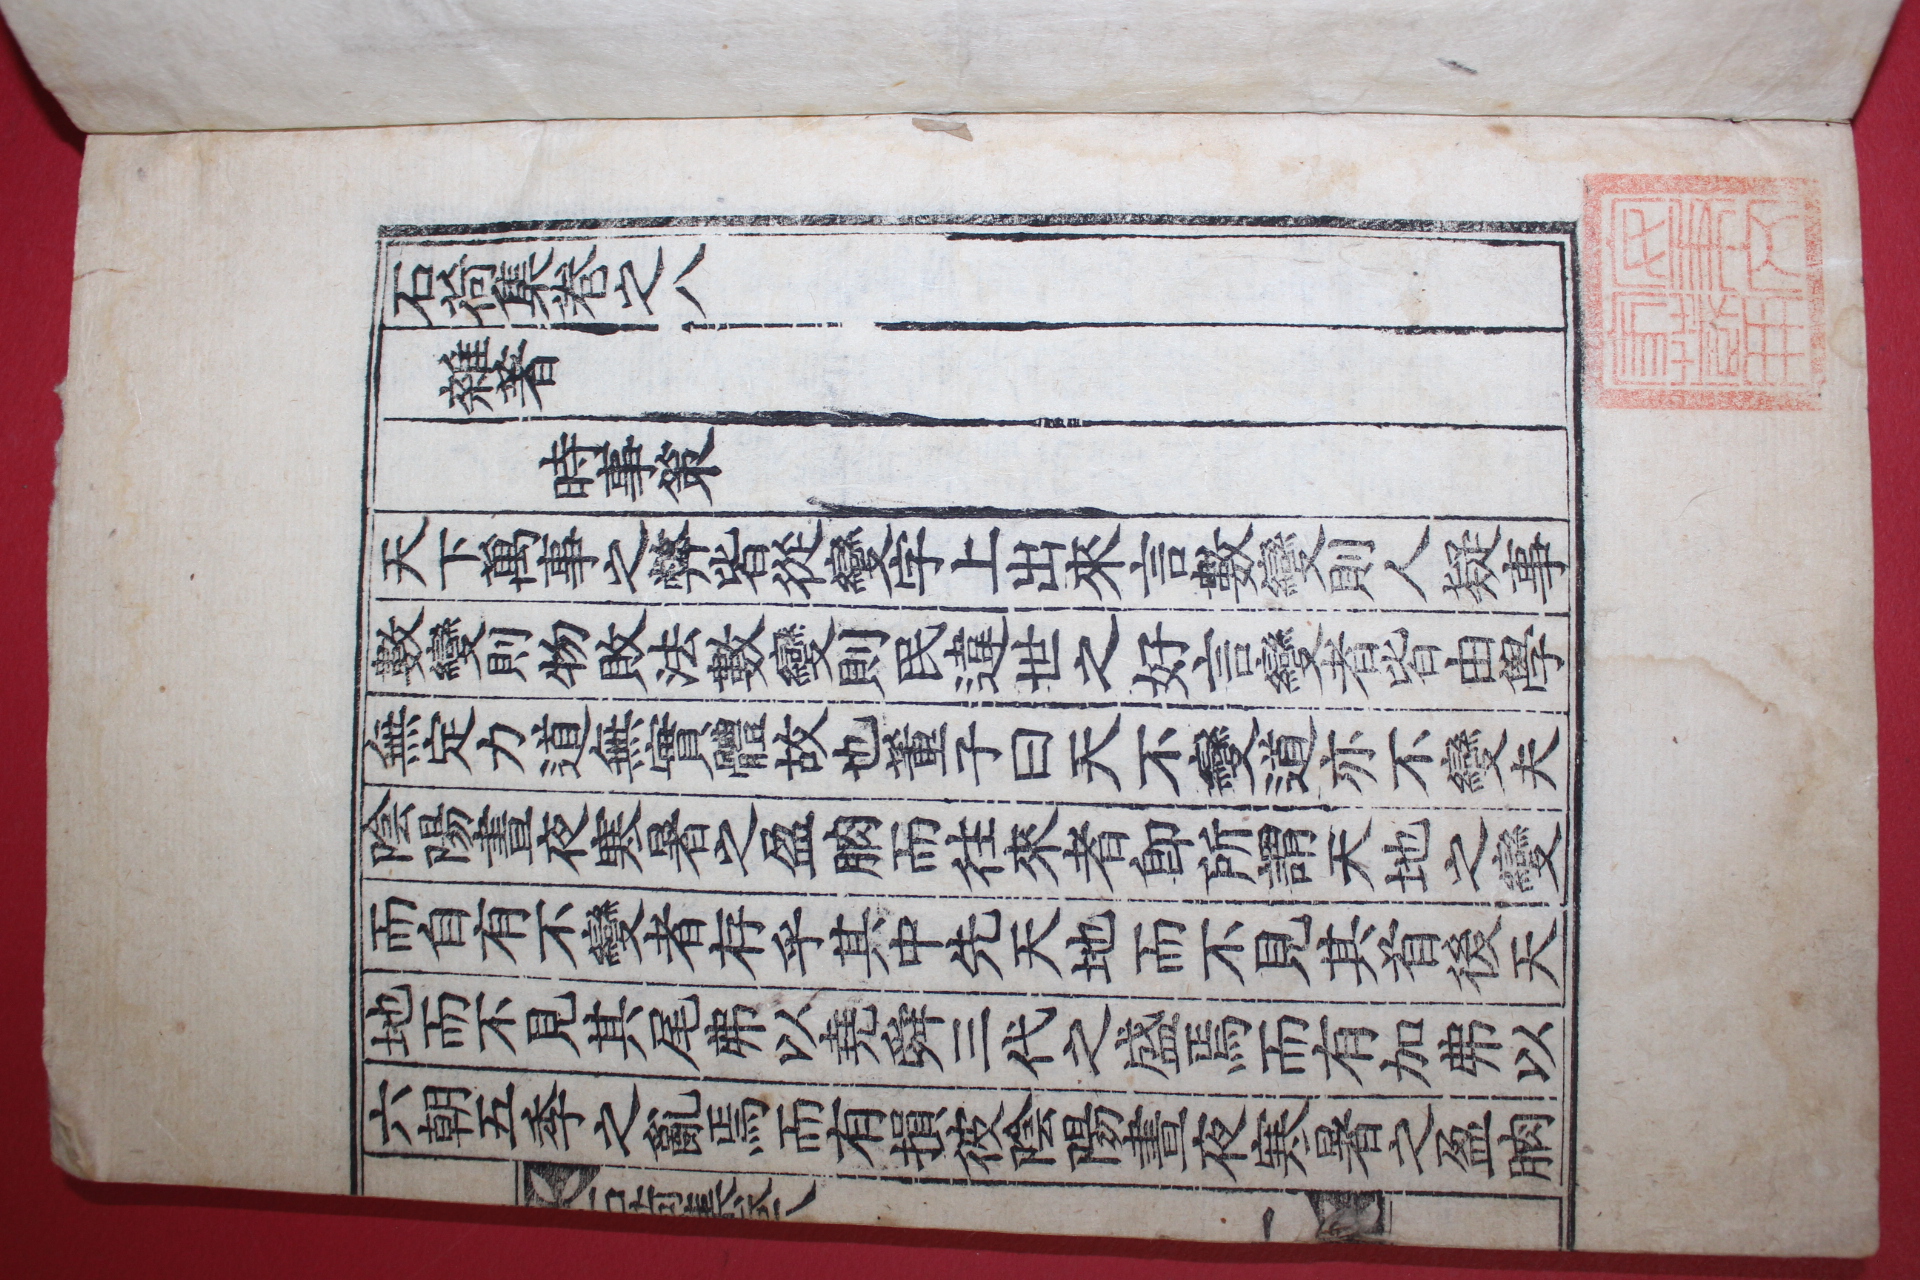 石集卷之八
雜著
時事策
天下萬事之弊皆從變字上出來言數變則人疑事
數變則物敗法數變則民違世之好言變者皆由學
無定力道無實體故也董子曰天不變道亦不變夫
陰陽晝夜寒暑之盈朒而往來者卽所謂天地之變
而自有不變者存乎其中先天地而不見其首後天
地而不見其尾弗以堯舜三代之盛焉而有加弗以
六朝五季之亂焉而有損彼陰陽晝夜寒暑之盈朒